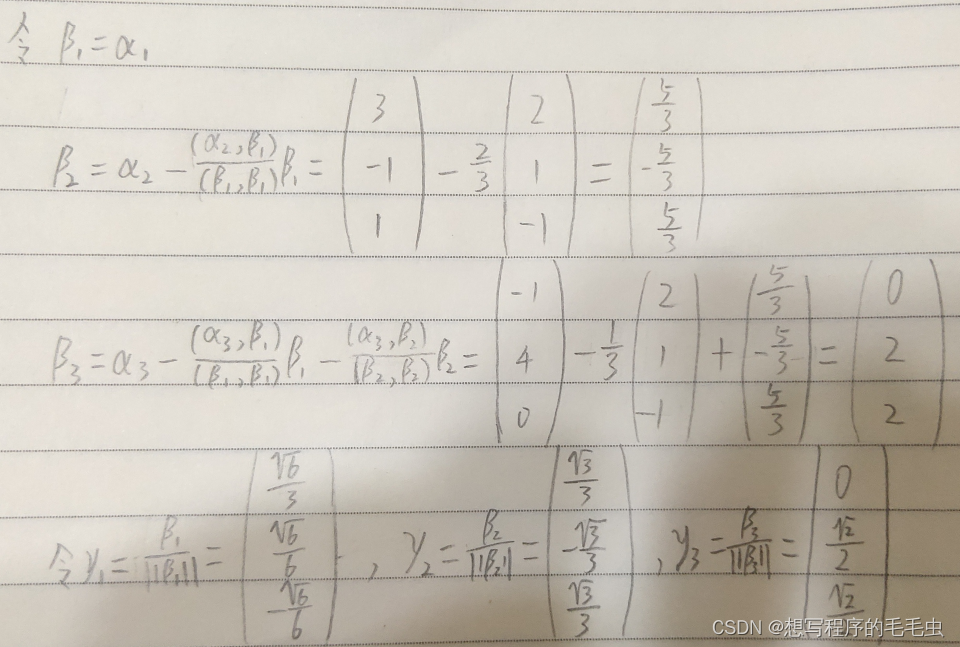 令 β₁ = α₁
β₂ = α₂ - (α₂,β₁)/(β₁,β₁) β₁ = (3, -1, 1) - 2/3 (2, 1, -1) = (5/3, -5/3, 5/3)
β₃ = α₃ - (α₃,β₁)/(β₁,β₁) β₁ - (α₃,β₂)/(β₂,β₂) β₂ = (-1, 4, 0) - 1/3 (2, 1, -1) + (5/3, -5/3, 5/3) = (0, 2, 2)
令 y₁ = β₁/||β₁|| = (√6/3, √6/6, -√6/6) , y₂ = β₂/||β₂|| = (√3/3, -√3/3, √3/3) , y₃ = β₃/||β₃|| = (0, √2/2, √2/
CSDN @想写程序的毛毛虫